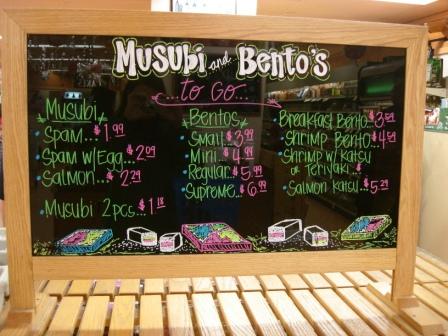 Musubi and Bento's
...to Go...
Musubi
• Spam... $1.99
• Spam w/Egg... $2.09
• Salmon... $2.29
• Musubi 2pcs... $1.18
Bentos
• Small... $3.99
• Mini... $4.99
• Regular... $5.99
• Supreme... $6.99
• Breakfast Bento...
• Shrimp Bento...
• Shrimp w/ Katsu
or Teriyaki...
• Salmon Katsu... $5.29